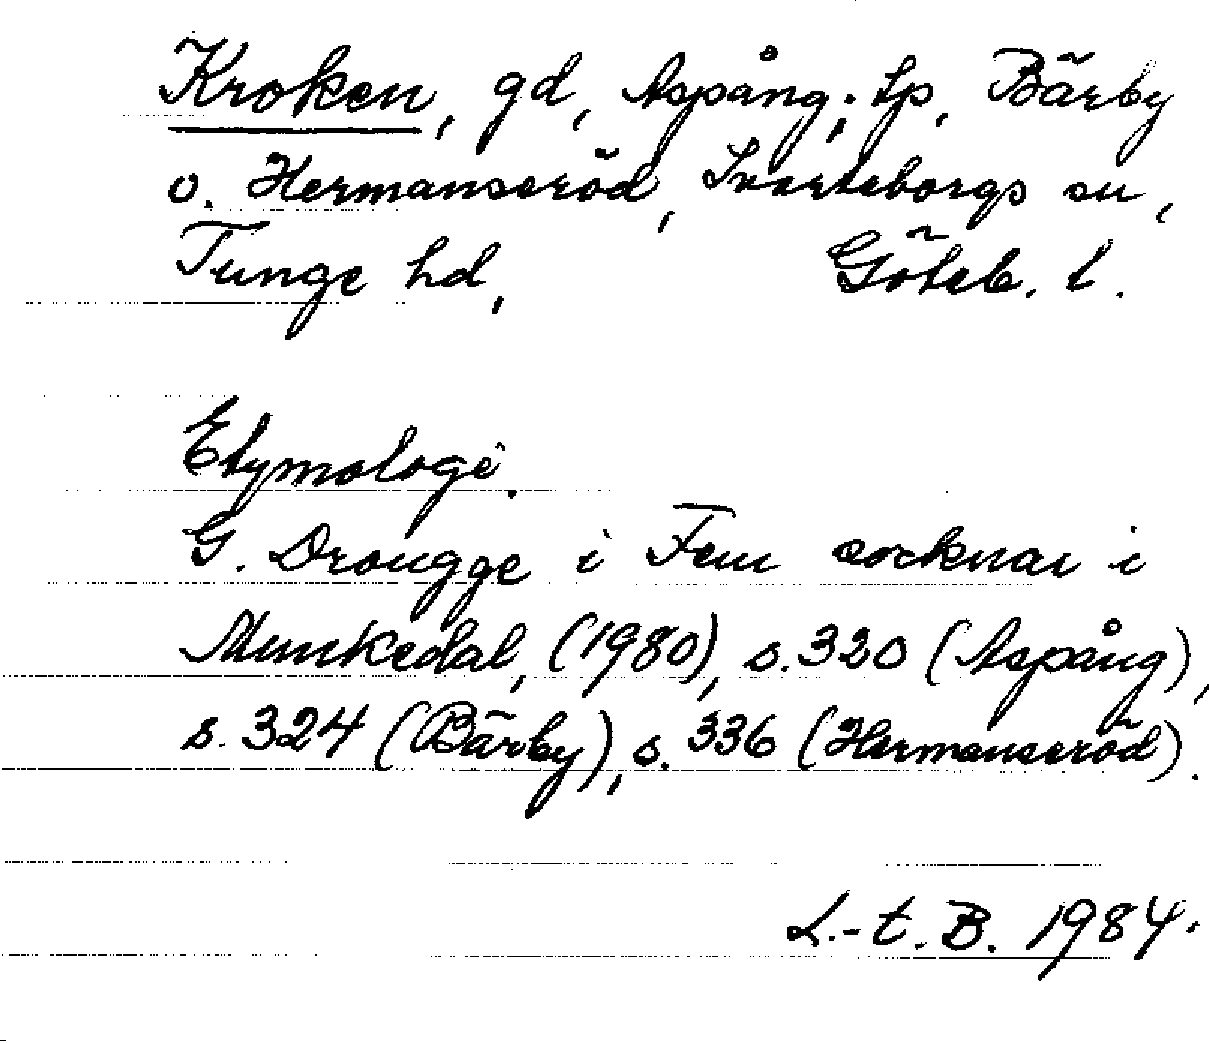 Kroken, gd, Aspång; tp, Bärby
o. Hermanseröd, Svarteborgs sn,
Tunge hd, Göteb. l.
Etymologi.
G. Drougge i Fem socknar i
Munkedal, (1980), s. 320 (Aspång),
s. 324 (Bärby), s. 336 (Hermanseröd).
L.-t. B. 1984.